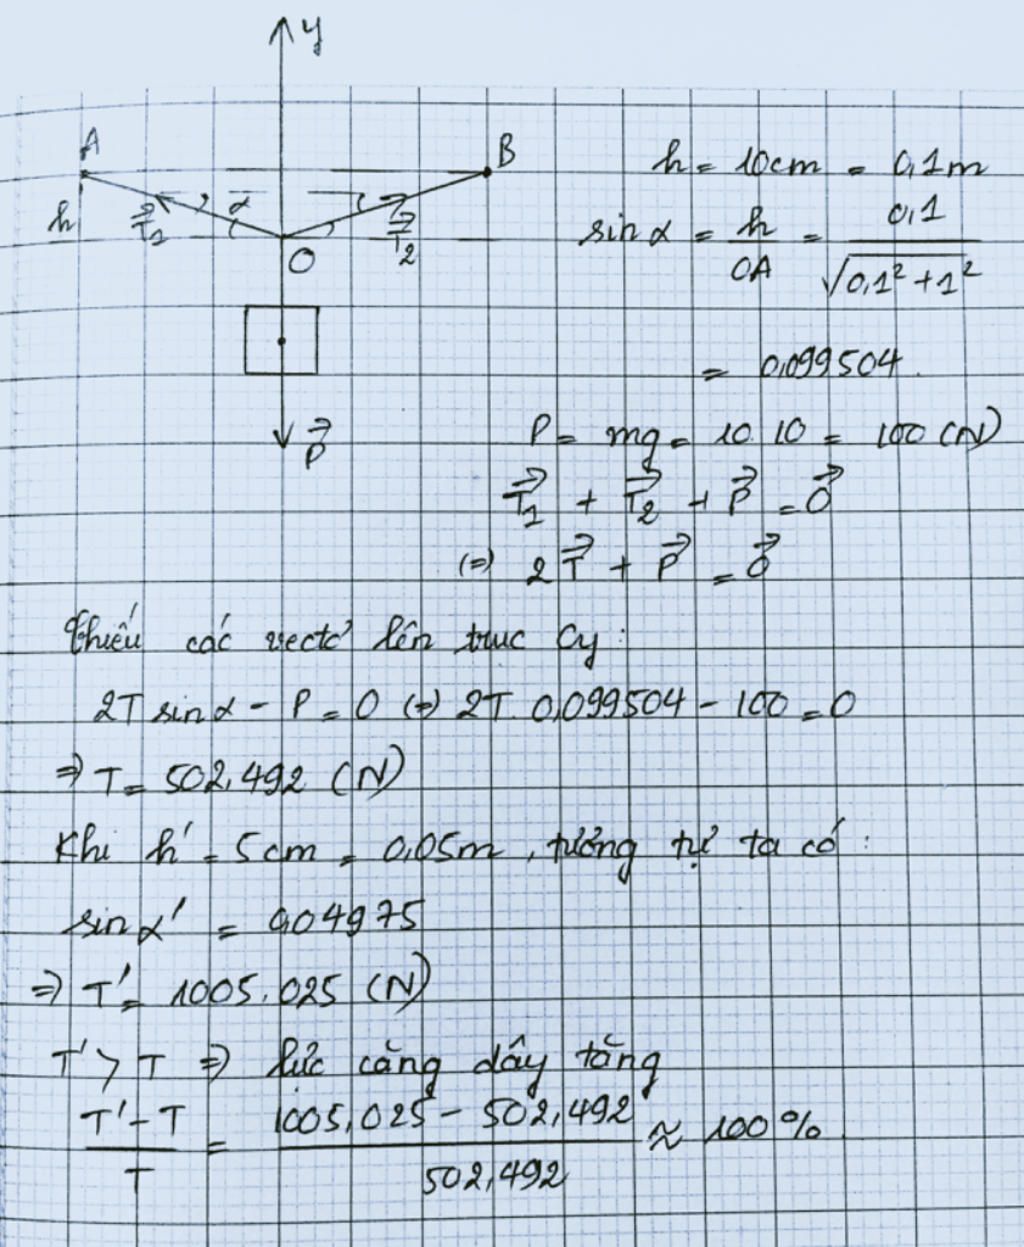 y
A
B
h
α
T₁
T₂
O
P
h = 10cm = 0,1m
sin α = h/OA = 0,1/√(0,1² + 1²)
= 0,099504.
P = mg = 10.10 = 100 (N)
T₁ + T₂ + P = 0
(=) 2T + P = 0
Chiếu các vectơ lên trục Oy:
2T sin α - P = 0 (=) 2T. 0,099504 - 100 = 0
⇒ T = 502,492 (N)
Khi h' = 5cm = 0,05m, tương tự ta có:
sin α' = 0,04975
⇒ T' = 1005,025 (N)
T' > T ⇒ lực căng dây tăng
(T' - T)/T = (1005,025 - 502,492)/502,492 ≈ 100%